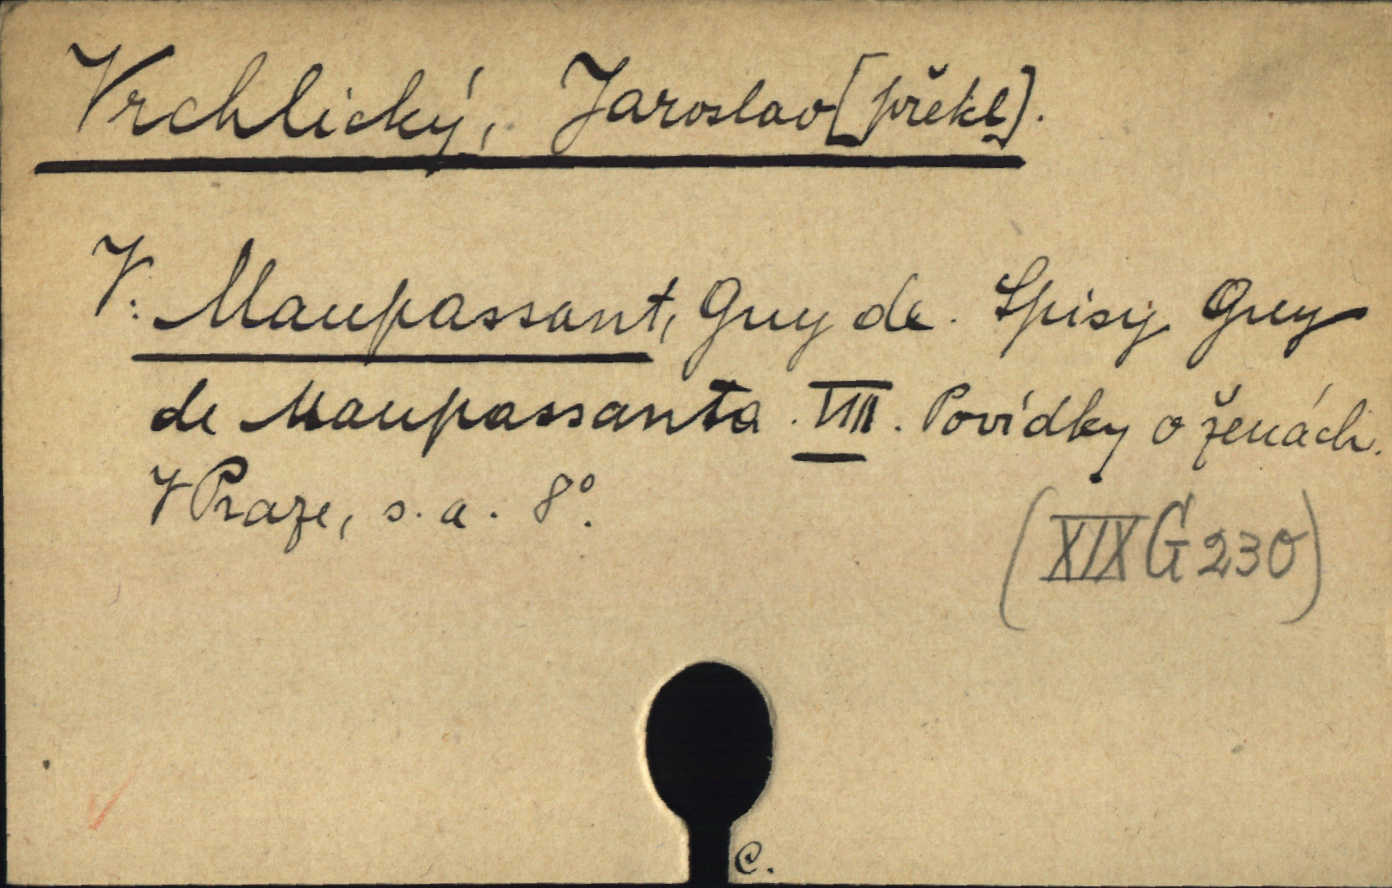 Vrchlický, Jaroslav [překl].
V: Maupassant, Guy de. Spisy Guy
de Maupassanta. VIII. Povídky o ženách.
V Praze, s. a. 8°.
(XIX G 230)
C.